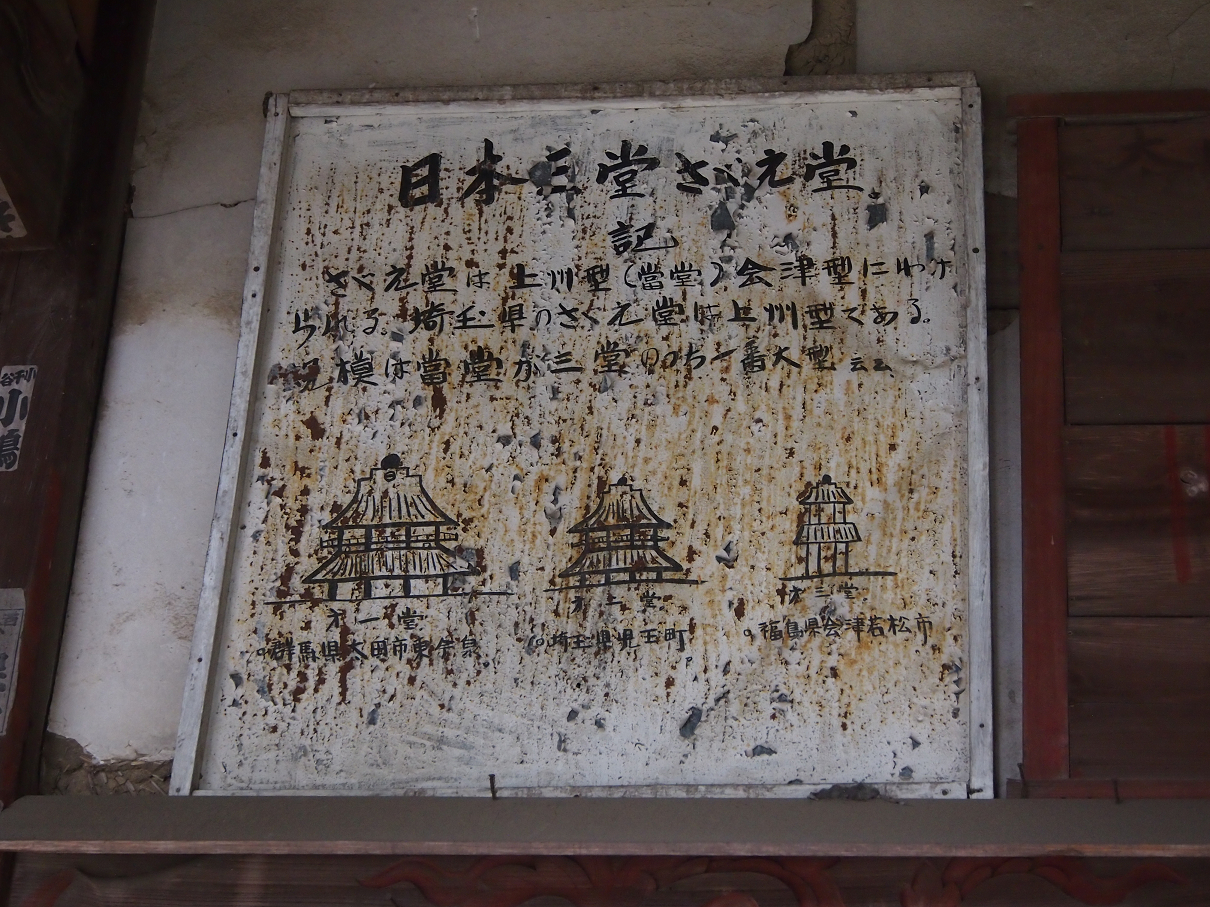 日本三堂さゞえ堂
記
さゞえ堂は上州型(當堂)会津型にわけ
られる。埼玉県のさゞえ堂は上州型である。
規模は當堂が三堂ののうち一番大型 云云
才一堂
才二堂
才三堂
○群馬県太田市東今泉
○埼玉県児玉町
○福島県会津若松市
小鳴